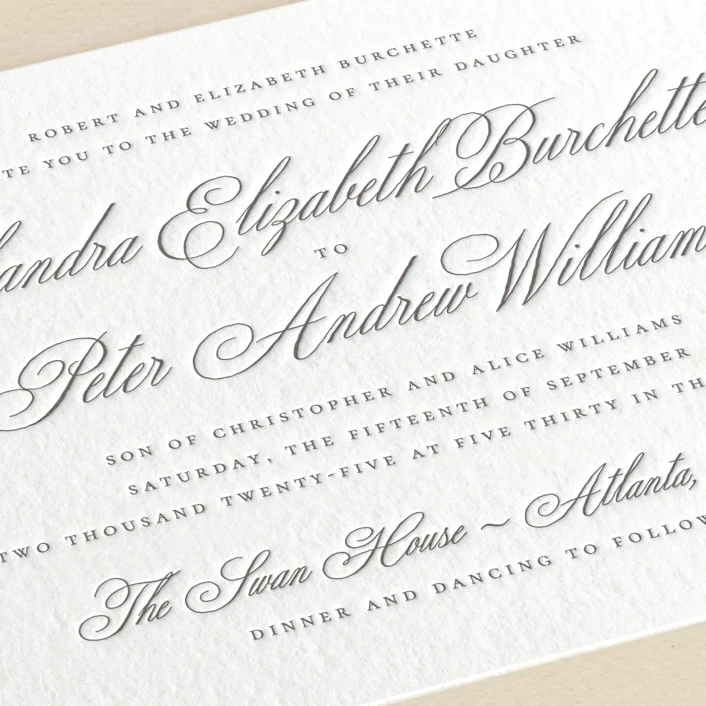 ROBERT AND ELIZABETH BURCHETTE
TE YOU TO THE WEDDING OF THEIR DAUGHTER
andra Elizabeth Burchette
TO
Peter Andrew William
SON OF CHRISTOPHER AND ALICE WILLIAMS
SATURDAY, THE FIFTEENTH OF SEPTEMBER
TWO THOUSAND TWENTY-FIVE AT FIVE THIRTY IN TH
The Swan House ~ Atlanta,
DINNER AND DANCING TO FOLLOW